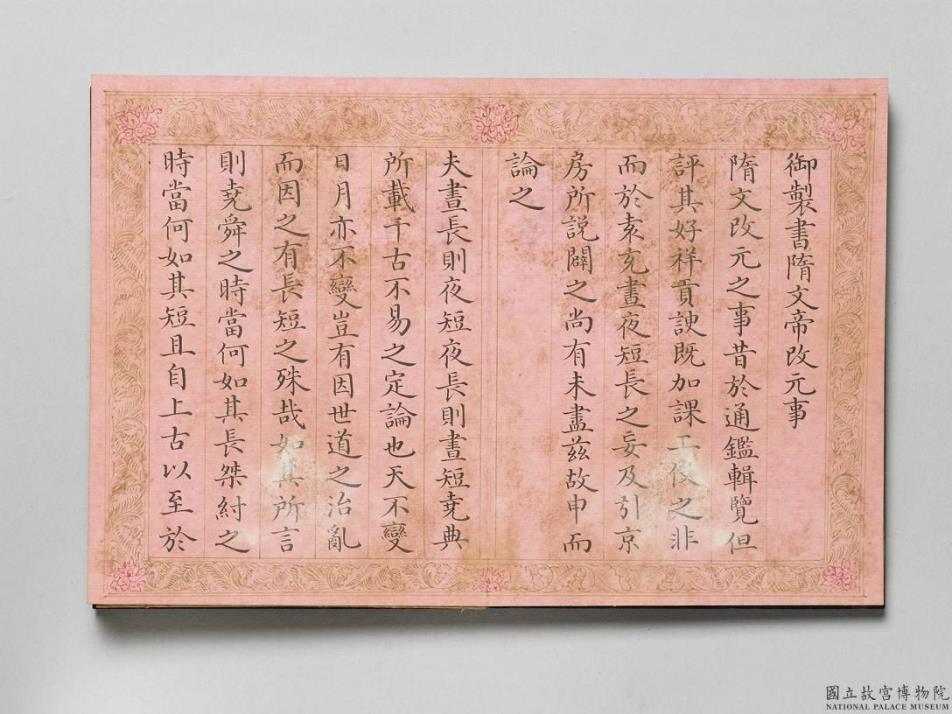 御製書隋文帝改元事
隋文改元之事昔於通鑑輯覽但
評其好祥貢諛既加課工役之非
而於袁充晝夜短長之妄及引京
房所説闢之尚有未盡茲故申而
論之
夫晝長則夜短夜長則晝短堯典
所載千古不易之定論也天不變
日月亦不變豈有因世道之治亂
而因之有長短之殊哉如其所言
則堯舜之時當何如其長桀紂之
時當何如其短且自上古以至於
國立故宮博物院
NATIONAL PALACE MUSEUM